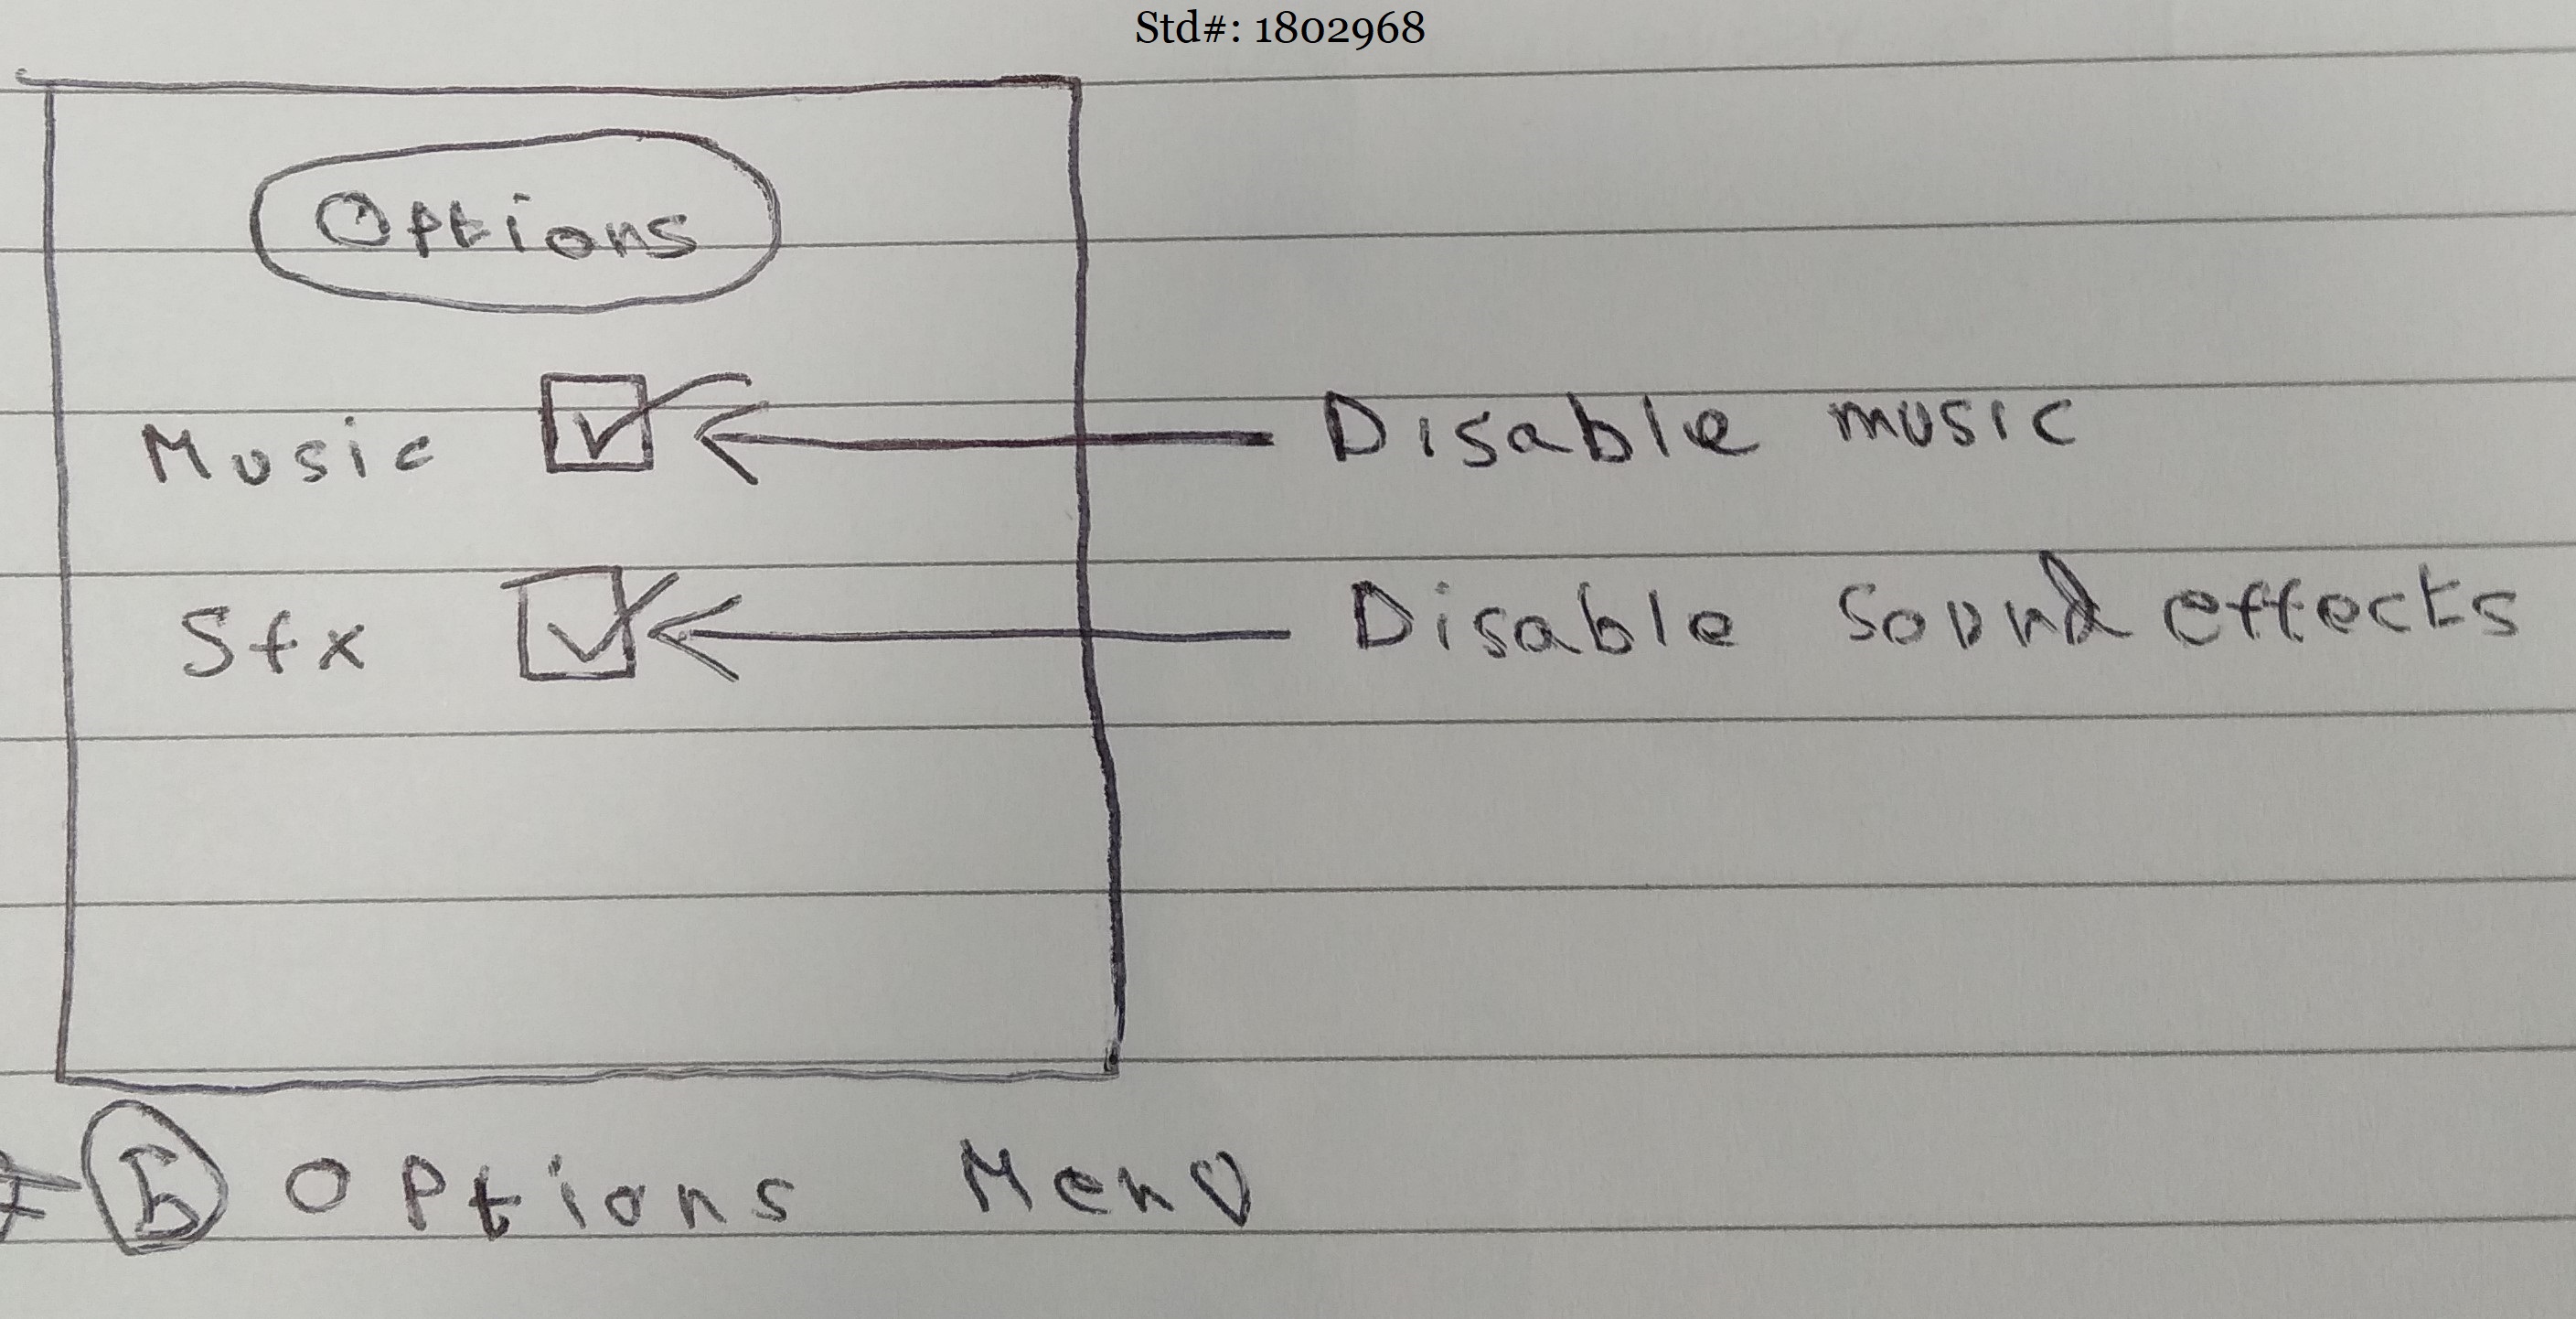 Std#: 1802968
Options
Music Disable music
Sfx Disable Sound effects
5 Options Menu